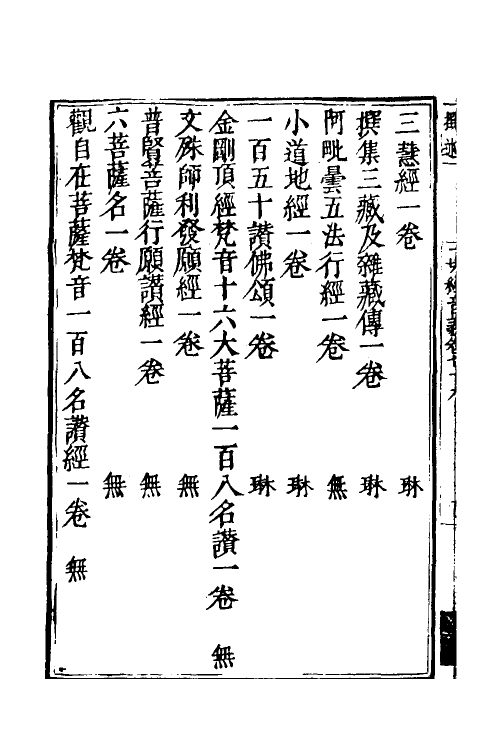 三慧經一卷 琳
撰集三藏及雜藏傳一卷 琳
阿毗曇五法行經一卷 無
小道地經一卷 琳
一百五十讚佛頌一卷 琳
金剛頂經梵音十六大菩薩一百八名讚一卷 無
文殊師利發願經一卷 無
普賢菩薩行願讚經一卷 無
六菩薩名一卷 無
觀自在菩薩梵音一百八名讚經一卷 無